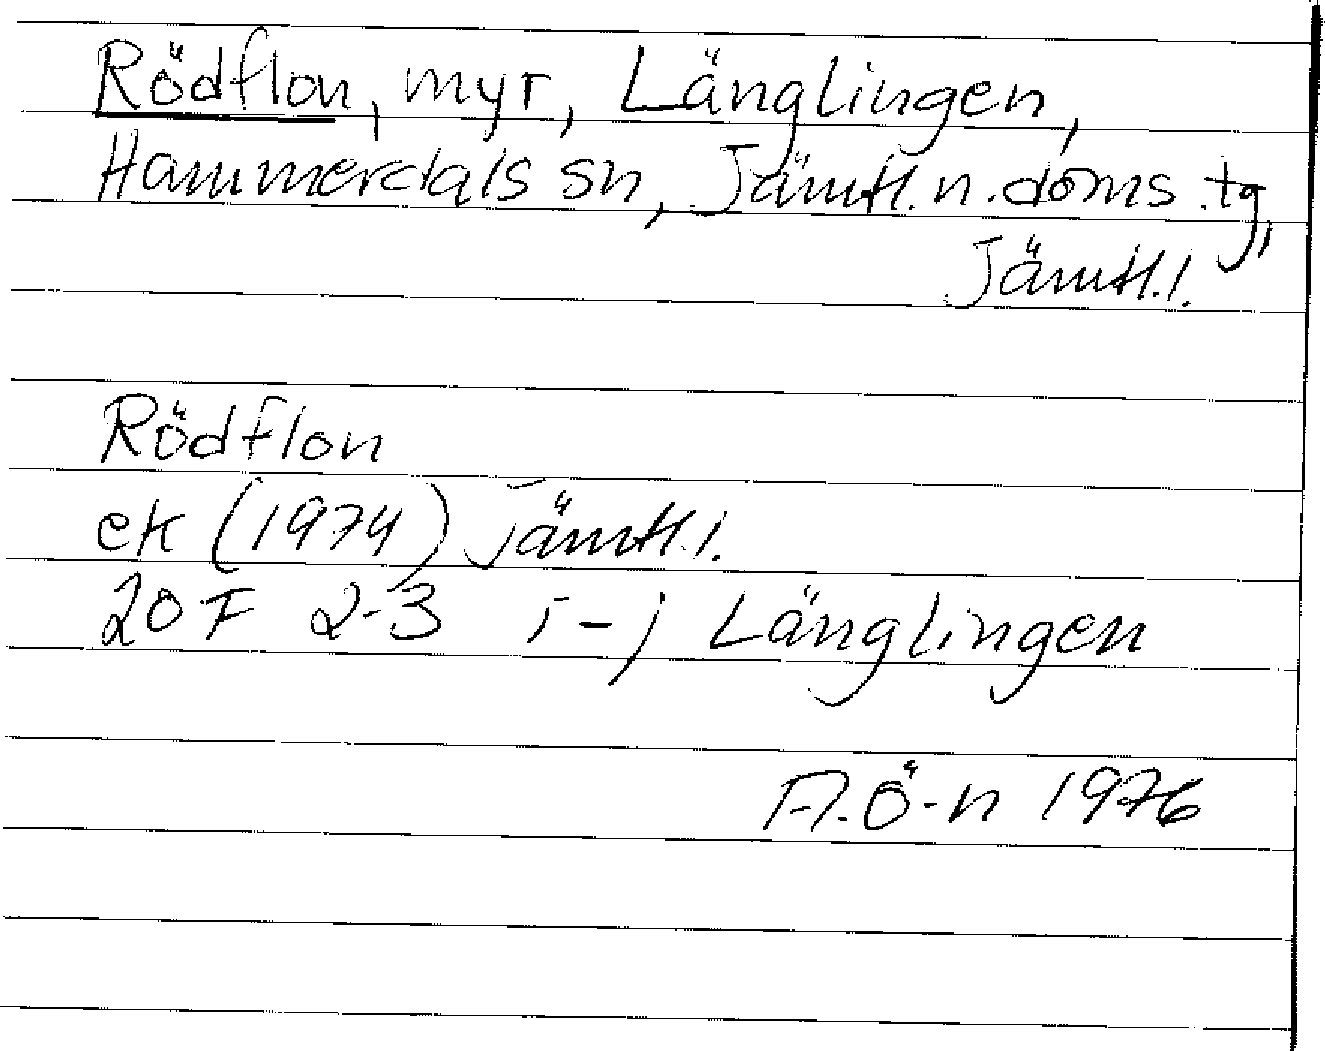 Rödflon, myr, Länglingen,
Hammerdals sn, Jämtl. n. doms. tg,
Jämtl. l.
Rödflon
ek (1974) Jämtl. l.
20 F 2-3 i-j Länglingen
A. Ö-n 1976